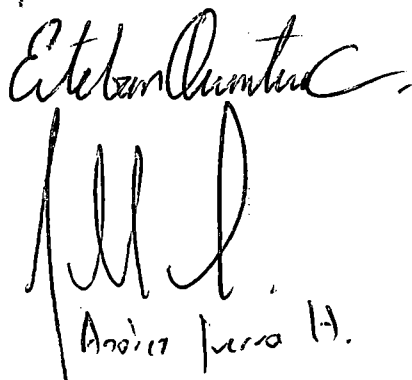 Esteban Quintero C.
Andrés Guerra H.